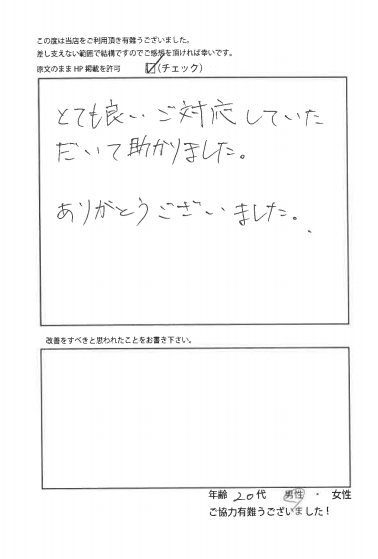 この度は当店をご利用頂き有難うございました。
差し支えない範囲で結構ですのでご感想を頂ければ幸いです。
原文のまま HP 掲載を許可 ☑(チェック)
とても良いご対応していた
だいて助かりました。
ありがとうございました。
改善をすべきと思われたことをお書き下さい。
年齢 20代 男性 ・ 女性
ご協力有難うございました!